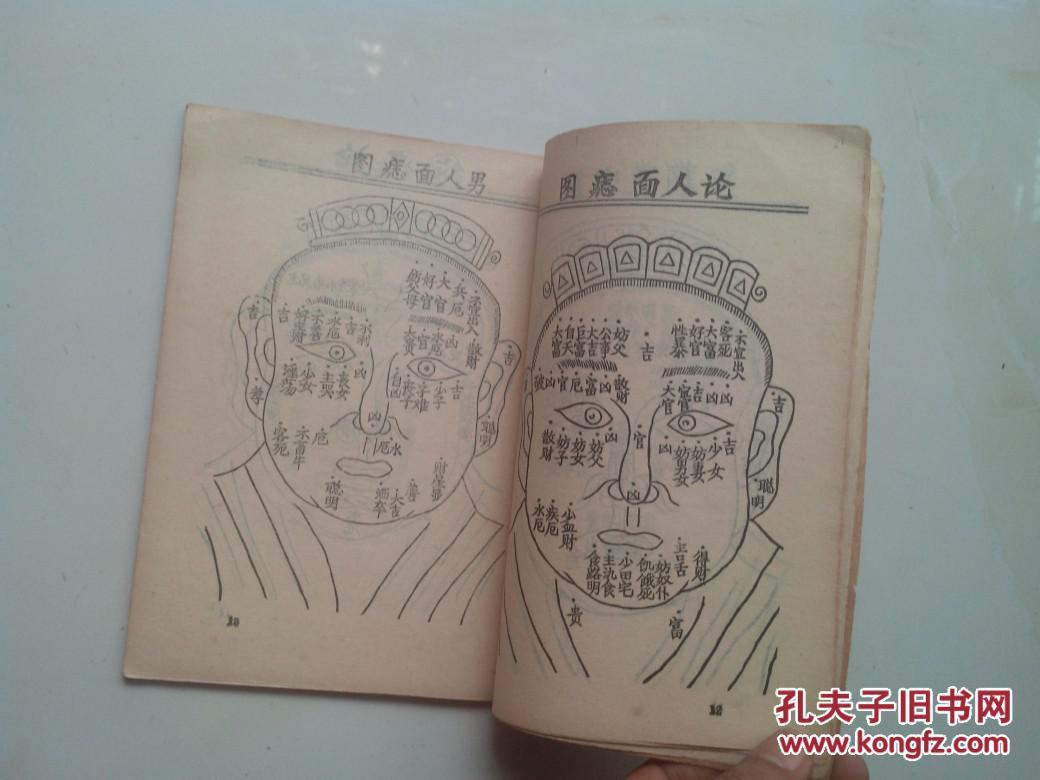 论人面痣图
不宜出入
客死
大富
好官
性暴
吉
妨父
公事
大吉
巨富
自天
大富
凶
凶
吉
宜官
大官
散财
凶
富
厄
官
凶
破
吉
聪明
吉
少女
妨妻
妨男女
凶
官
凶
妨父
妨女
妨子
散财
凶
少血财
疾厄
水厄
得财
主口舌
妨奴仆
饥饿死
少田宅
食
富
贵
12
男人面痣图
不宜出入
兵厄
大官
好官
妨父母
散财
凶
水厄
官
大贵
吉
聪明
吉
少子
自凶
水厄
吉
不善
吉
凶
丧女
主哭
少女
吉
孝
凶
水厄
厄
客死
财
大吉
聪明
孔夫子旧书网
www.kongfz.com